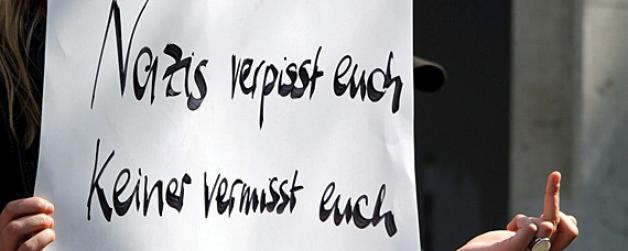 Nazis verpisst euch
Keiner vermisst euch